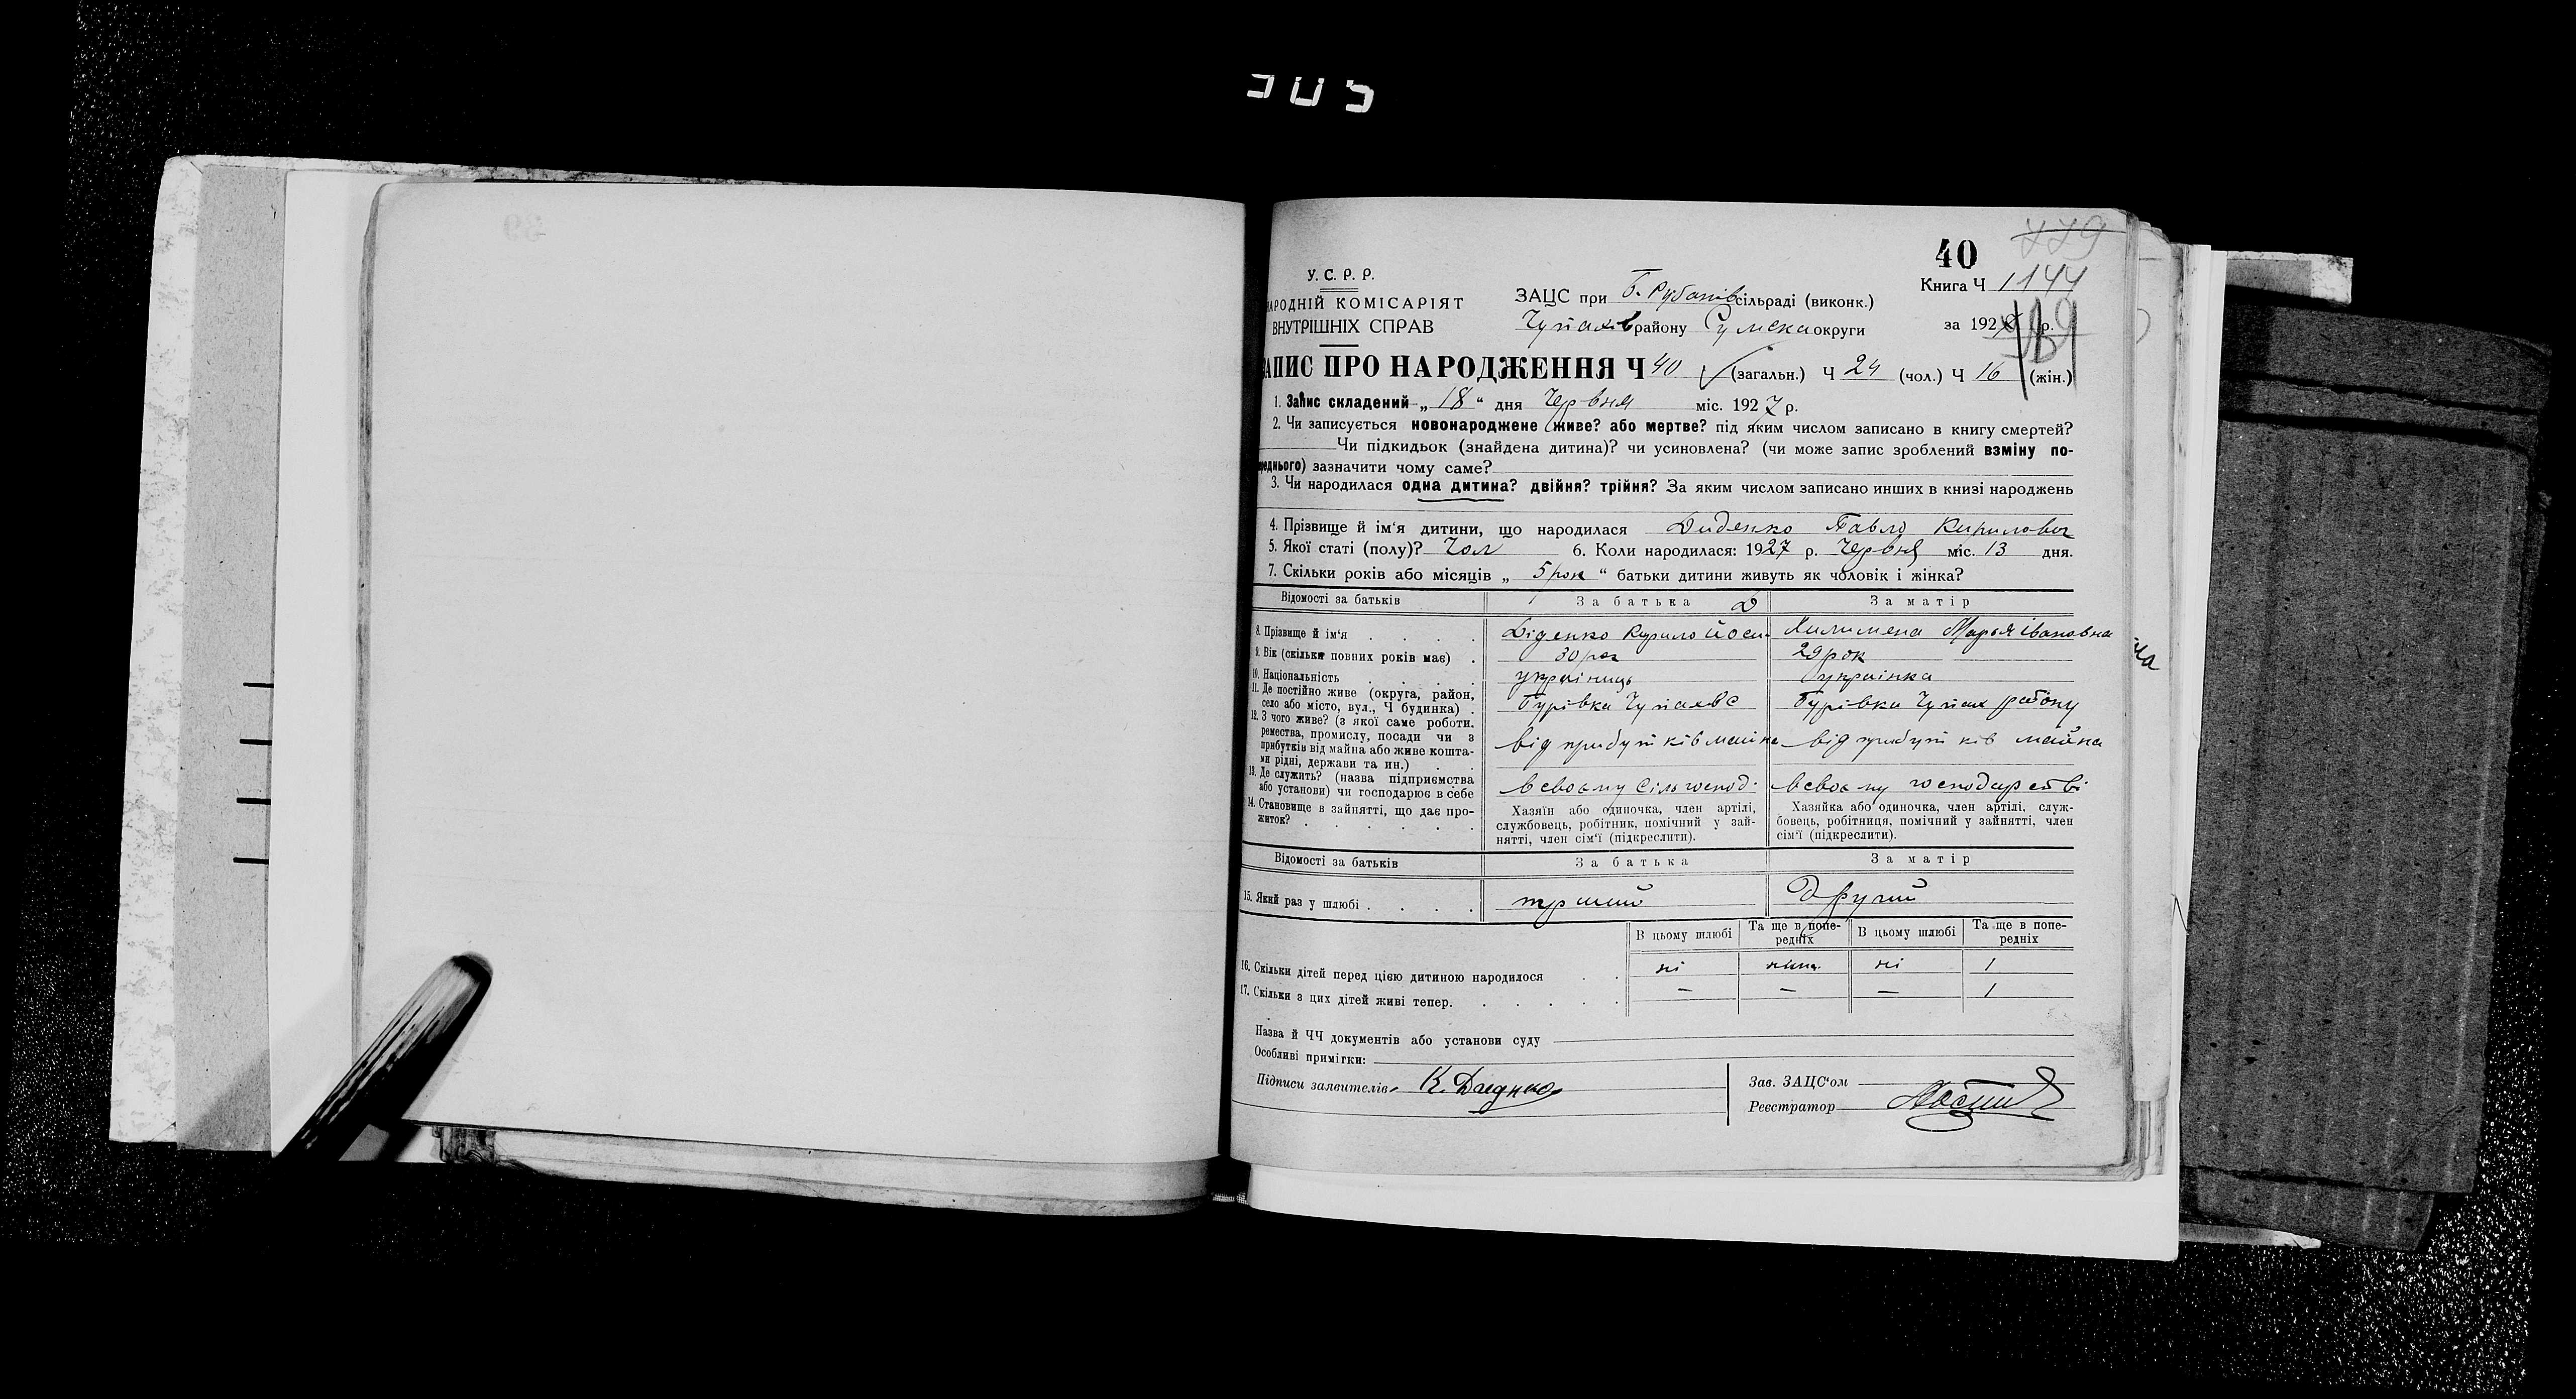 505
40
779
У. С. Р. Р.
НАРОДНІЙ КОМІСАРІЯТ
ВНУТРІШНІХ СПРАВ
ЗАЦС при Б. Рубанів сільраді (виконк.)
Чупахів району Сумська округи
Книга Ч 1144
за 192 р.
ЗАПИС ПРО НАРОДЖЕННЯ Ч 40 (загальн.) Ч 24 (чол.) Ч 16 (жін.)
1. Запис складений „ 18 “ дня Червня міс. 1927 р.
2. Чи записується новонароджене живе? або мертве? під яким числом записано в книгу смертей?
Чи підкидьок (знайдена дитина)? чи усиновлена? (чи може запис зроблений взміну по-
реднього) зазначити чому саме?
3. Чи народилася одна дитина? двійня? трійня? За яким числом записано инших в книзі народжень
4. Прізвище й ім‘я дитини, що народилася Диденко Павло Кирилович
5. Якої статі (полу)? Чол 6. Коли народилася: 1927 р. Червня міс. 13 дня.
7. Скільки років або місяців „ 5 рок “ батьки дитини живуть як чоловік і жінка?
Відомості за батьків За батька За матір
8. Прізвище й ім‘я Діденко Курило Йоси- Марья Івановна
9. Вік (скільки повних років має) 30 рок 29 рок
10. Національність україниць українка
11. Де постійно живе (округа, район,
село або місто, вул., Ч будинка) Гурівка Чупахвс Гурівка Чупах району
12. З чого живе? (з якої саме роботи.
ремества, промислу, посади чи з
прибутків від майна або живе кошта- від прибутків майна від прибутків майна
ми рідні, держави та ин.)
13. Де служить? (назва підприємства
або установи) чи господарює в себе всвоєму сільгоспод. всвоєму господарстві
14. Становище в зайнятті, що дає про-
житок?
Хазяїн або одиночка, член артілі,
службовець, робітник, помічний у зай-
нятті, член сім‘ї (підкреслити).
Хазяйка або одиночка, член артілі, служ-
бовець, робітниця, помічний у зайнятті, член
сім‘ї (підкреслити).
Відомості за батьків За батька За матір
15. Який раз у шлюбі Другий
В цьому шлюбі Та ще в попе-редніх В цьому шлюбі Та ще в попе-редніх
16. Скільки дітей перед цією дитиною народилося ні нима ні 1
17. Скільки з цих дітей живі тепер. — — — 1
Назва й ЧЧ документів або установи суду
Особливі примітки:
Підписи заявителів К. Диднко
Зав. ЗАЦС‘ом
Реєстратор